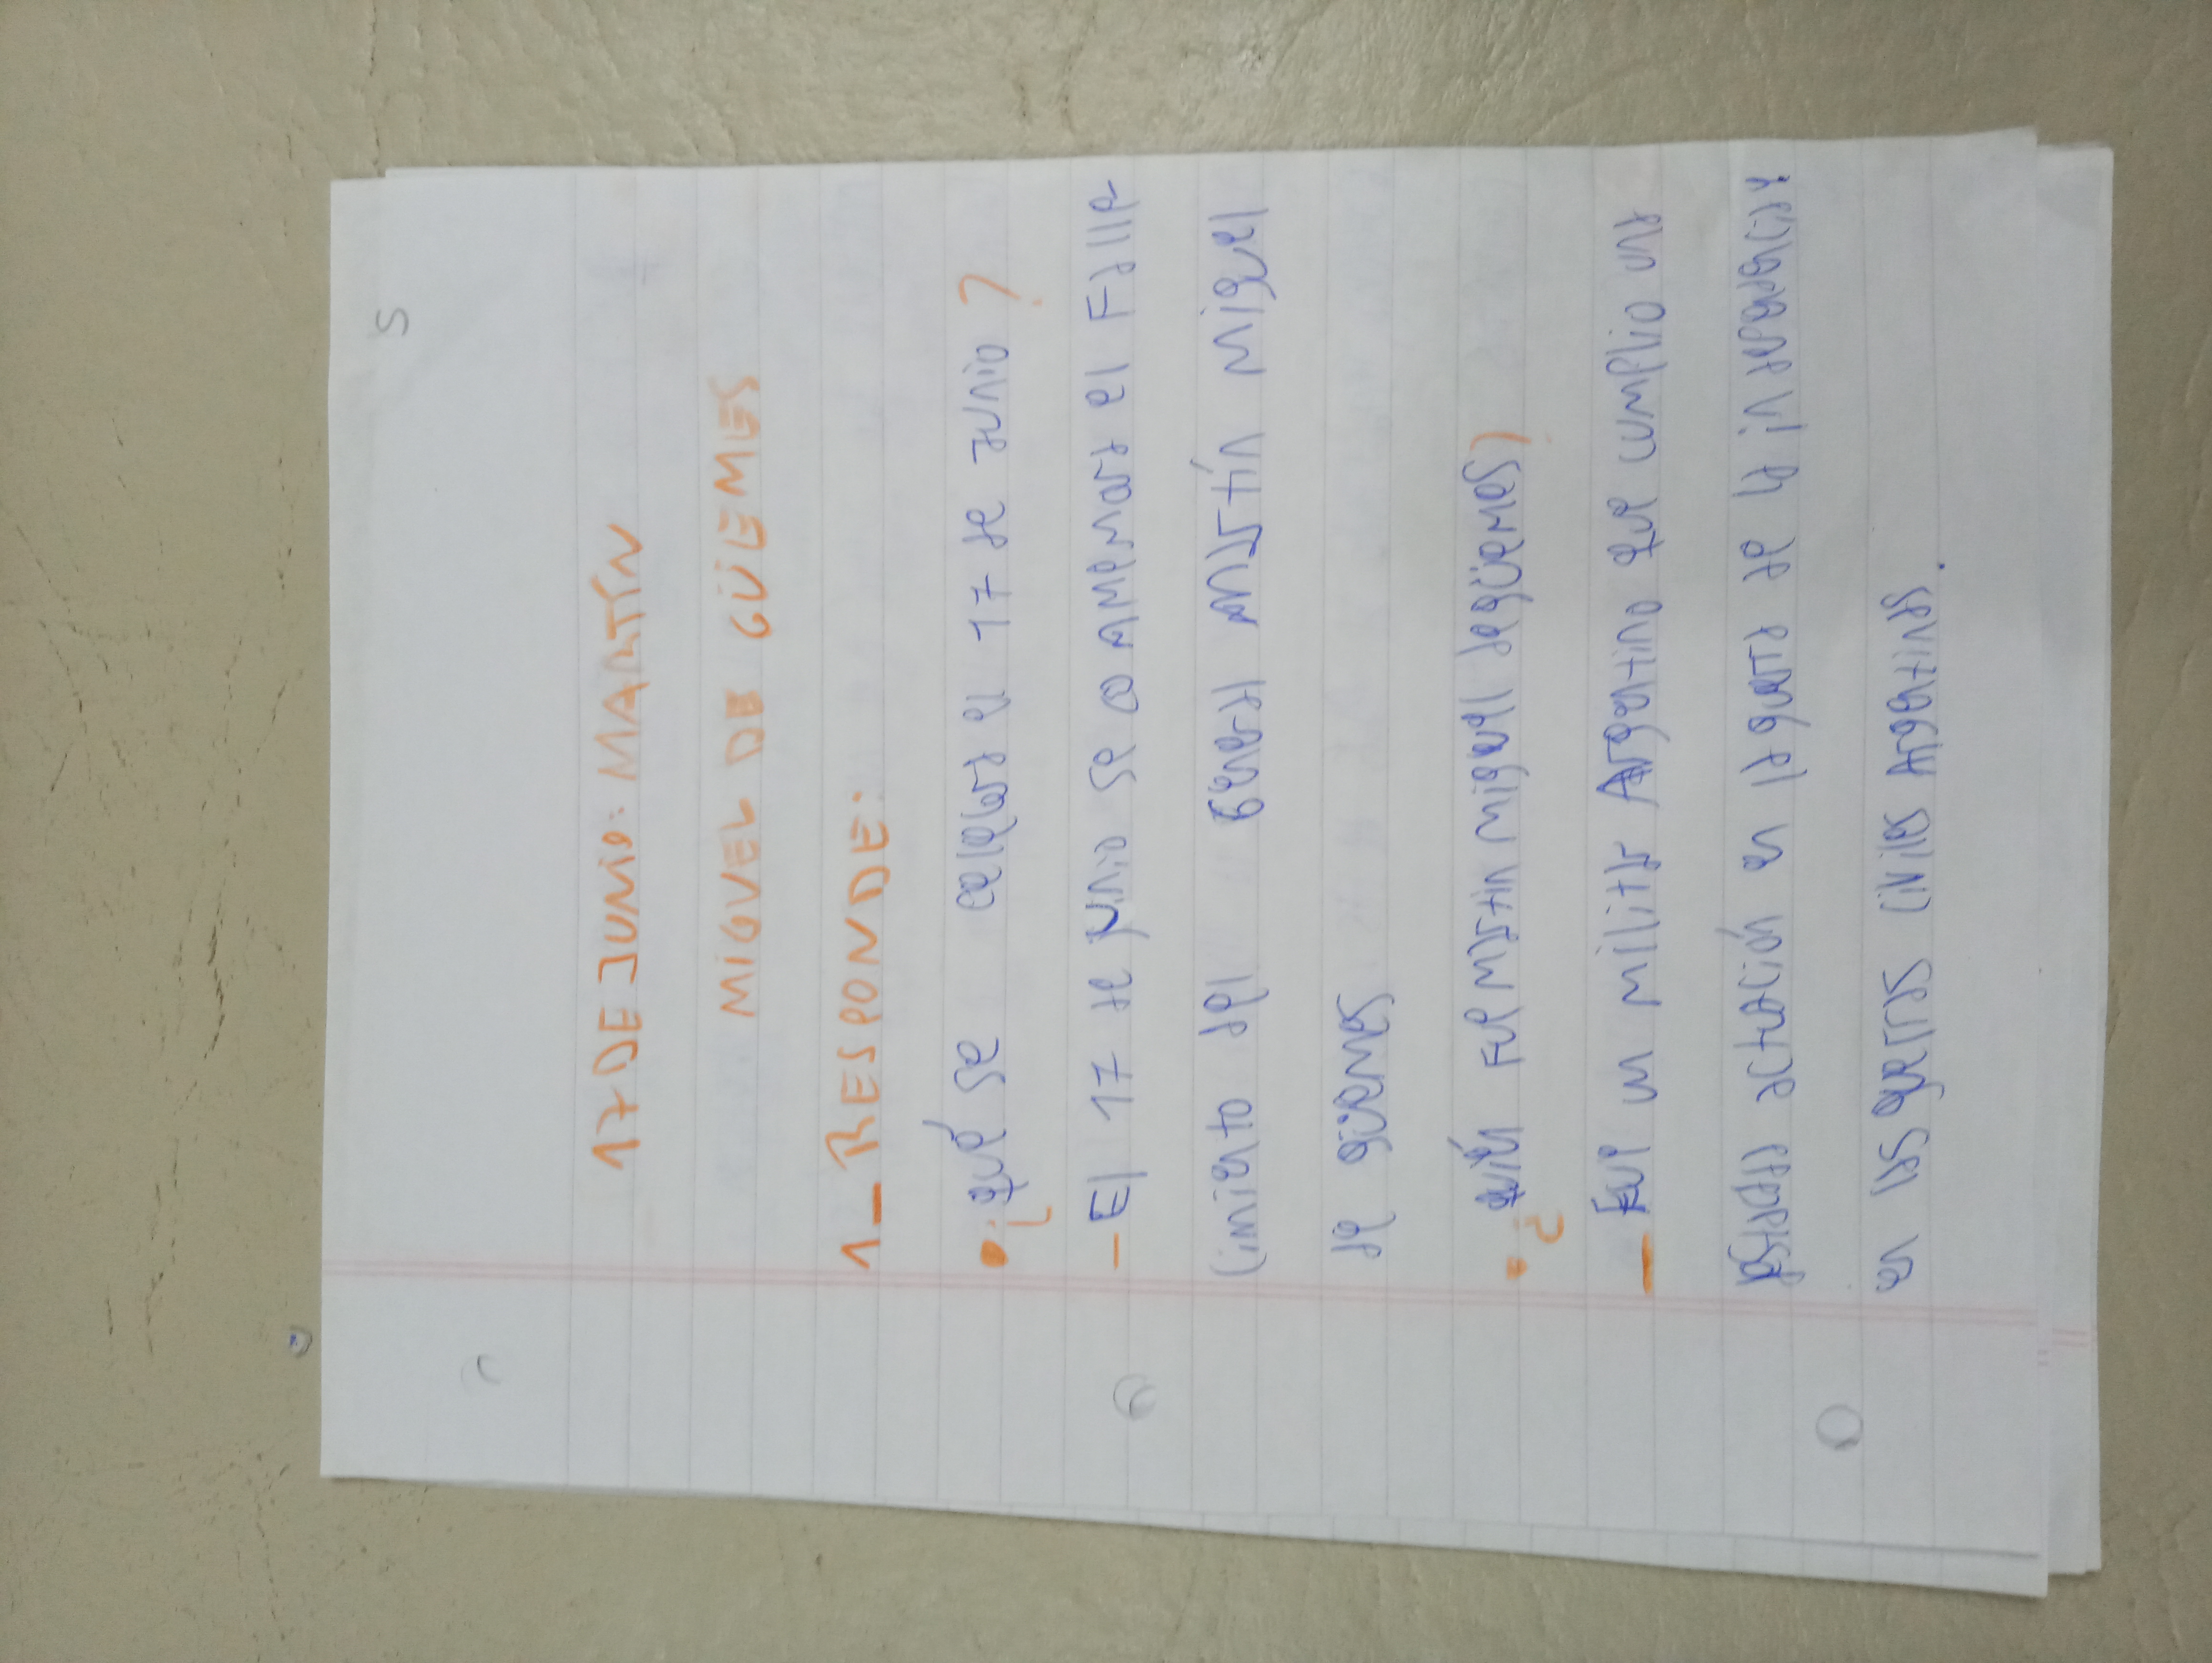 5
17 DE JUNIO: MARTÍN
MIGUEL DE GÜEMES
1_ RESPONDE:
• ¿Qué se celebra el 17 de junio?
- El 17 de junio se conmemora el Falle
cimiento del General Martín Miguel
de güemes
• ¿Quién Fue Martin miguel de güemes?
- Fue un militar Argentino que cumplio una
actuación en la guerra de la independencia
en las guerras civiles Argentinas.